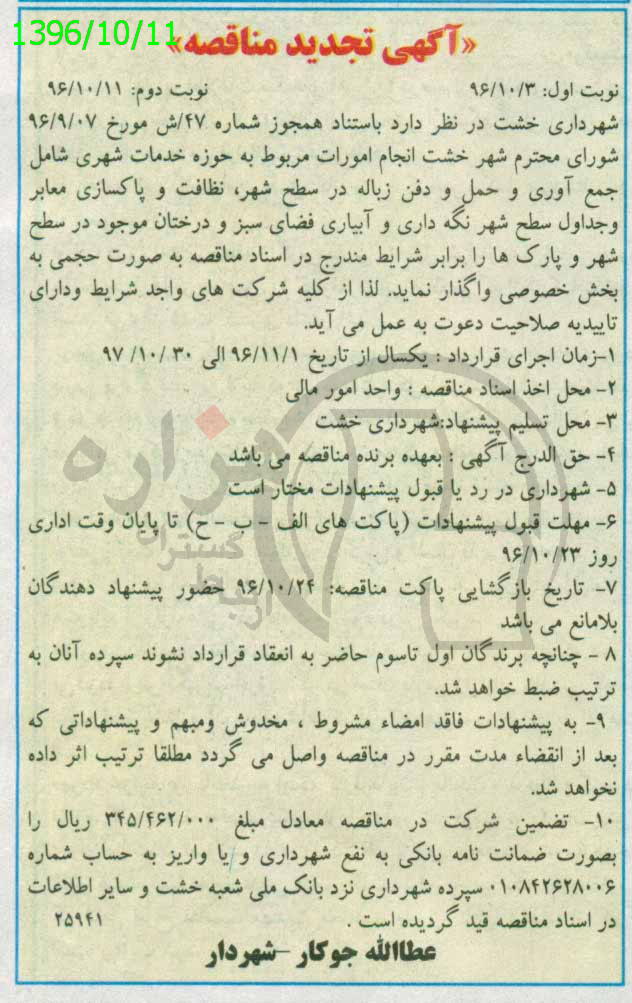 1396/10/11
«آگهی تجدید مناقصه»
نوبت اول: ۹۶/۱۰/۳ نوبت دوم: ۹۶/۱۰/۱۱
شهرداری خشت در نظر دارد باستناد همجوز شماره ۴۷/ش مورخ ۹۶/۹/۰۷
شورای محترم شهر خشت انجام امورات مربوط به حوزه خدمات شهری شامل
جمع آوری و حمل و دفن زباله در سطح شهر، نظافت و پاکسازی معابر
وجداول سطح شهر نگه داری و آبیاری فضای سبز و درختان موجود در سطح
شهر و پارک ها را برابر شرایط مندرج در اسناد مناقصه به صورت حجمی به
بخش خصوصی واگذار نماید. لذا از کلیه شرکت های واجد شرایط ودارای
تاییدیه صلاحیت دعوت به عمل می آید.
۱-زمان اجرای قرارداد : یکسال از تاریخ ۹۶/۱۱/۱ الی ۳۰ /۱۰/ ۹۷
۲- محل اخذ اسناد مناقصه : واحد امور مالی
۳- محل تسلیم پیشنهاد:شهرداری خشت
۴- حق الدرج آگهی : بعهده برنده مناقصه می باشد
۵- شهرداری در رد یا قبول پیشنهادات مختار است
۶- مهلت قبول پیشنهادات (پاکت های الف - ب - ح) تا پایان وقت اداری
روز ۹۶/۱۰/۲۳
۷- تاریخ بازگشایی پاکت مناقصه: ۹۶/۱۰/۲۴ حضور پیشنهاد دهندگان
بلامانع می باشد
۸ - چنانچه برندگان اول تاسوم حاضر به انعقاد قرارداد نشوند سپرده آنان به
ترتیب ضبط خواهد شد.
۹- به پیشنهادات فاقد امضاء مشروط ، مخدوش ومبهم و پیشنهاداتی که
بعد از انقضاء مدت مقرر در مناقصه واصل می گردد مطلقا ترتیب اثر داده
نخواهد شد.
۱۰- تضمین شرکت در مناقصه معادل مبلغ ۳۴۵/۴۶۲/۰۰۰ ریال را
بصورت ضمانت نامه بانکی به نفع شهرداری و یا واریز به حساب شماره
۰۱۰۸۴۲۶۲۸۰۰۶ سپرده شهرداری نزد بانک ملی شعبه خشت و سایر اطلاعات
در اسناد مناقصه قید گردیده است . ۲۵۹۴۱
عطاالله جوکار -شهردار
هزاره
گستران